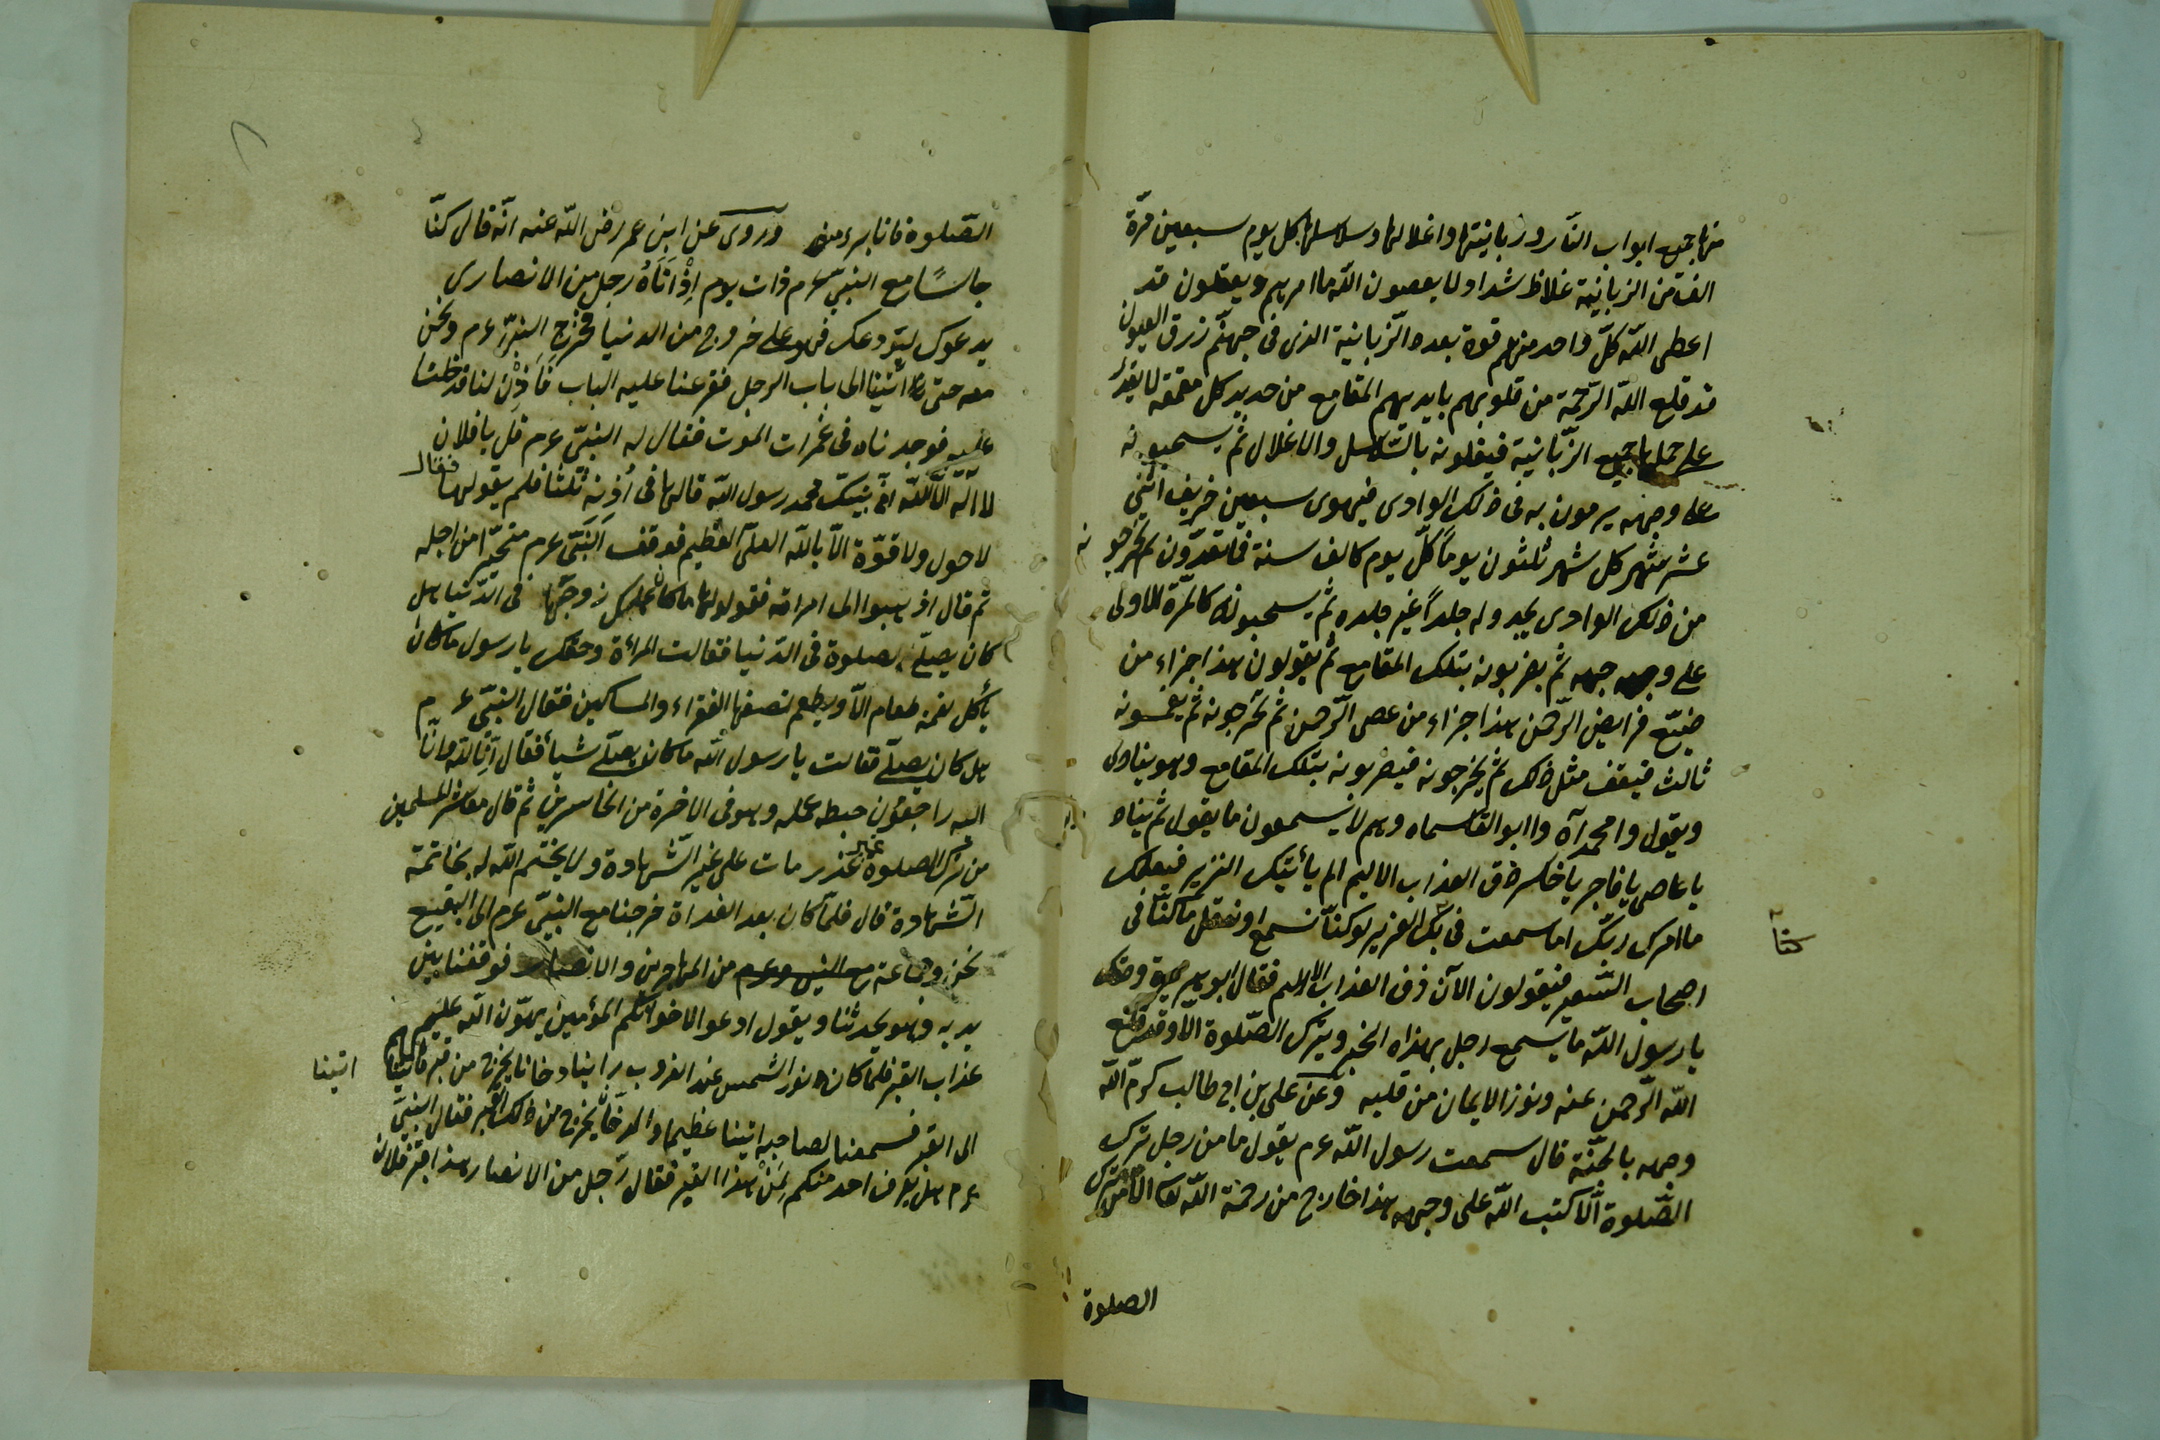 منها جميع ابواب النار وزبانيتها واغلالها وسلاسلها بكل يوم سبعين مرّة
الف من الزبانية غلاظ شداد لا يعصون الله ما امرهم ويفعلون قد
اعطى الله كلّ واحد منهم قوة بعده الزّبانية الذى فى جهنّم زرق العيون
قد قلع الله الرّحمة من قلوبهم بايديهم المقامع من حديد كل مقمعة لا يقدر
على حملها جميع الزّبانية فيغلونه بالسّلاسل والاغلال ثم يسحبونه
على وجهه يرمون به فى ذلك الوادى فيهوى سبعين خريف اثنى
عشر شهر كل شهر ثلثون يوماً كلّ يوم كالف سنة مما تعدّون ثم يخرجونه
من ذلك الوادى يجدوله جلداً غير جلده ثم يسحبونه كالمرّة الاولى
على وجهه ثم يضربونه بتلك المقامع ثم يقولون هذا جزاء من
ضيّع فرايض الرّحمن هذا جزاء من عصى الرّحمن ثم تخرجونه ثم يغمسونه
ثالث فيقف مثل ذلك ثم يخرجونه فيضربونه بتلك المقامع وهو ينادى
ويقول وا محمدآه وا ابو القاسماه وهم لا يسمعون ما يقول ثم يناه
يا عاصى يا فاجر يا خاسر ذق العذاب الاليم الم يأتيك النزير فيعلمك
ما امرك ربّك اما سمعت فى العزير لو كنّا نسمع او نعقل ما كنّا فى
كتاب
اصحاب السّعير فيقولون الآن ذق العذاب الاليم فقال ابو هريرة وحقك
يا رسول الله ما يسمع رجل بهذاه الخبر ويترك الصّلوة الا وقد قلع
الله الرّحمن عنه ونور الايمان من قلبه وعن على بن ابى طالب كرمّ الله
وجهه بالجنّة قال سمعت رسول الله عم يقول ما من رجل ترك
الصّلوة الّا كتب الله على وجهه هذا خارج من رحمة الله
الصلوة
الصّلوة فانا برء منه وروى عن ابن عمر رضى الله عنه انّه قال كنّا
جالسًا مع النبىّ عم ذات يوم اِذْ اَتَاهُ رجل من الانصارى
يدعوك ليتودعك فهو على خروج من الدنيا فخرج النبىّ عم ونحن
معه حتى اتينا الى باب الرجل فقرعنا عليه الباب فَاَذِنْ لنا فدخلنا
عليه فوجدناه فى غمرات الموت فقال له النبىّ عم قل يا فلان
لا اله الّا الله محمد رسول الله قالها فى اُذنه ثلثا فلم يقولها فقال
لا حول ولا قوّة الّا بالله العلىّ العظيم فوقف النبىّ عم متحيّرا من اجله
ثم قال اذهبوا الى امراته فقولوا لها ما كان عمل زوجها فى الدّنيا هل
كان يصلّى لصلوة فى الدّنيا فقالت المراة وحقك يا رسول ما كان
يأكل لقمة طعام الّا ويطعم نصفها الفقراء والمساكين فقال النبىّ عم
هل كان يصلّى فقالت يا رسول الله ما كان يصلّى شيأ فقال اِنّا لله وانّا
اليه راجعون حبط عمله وهو فى الاخرة من الخاسرين ثم قال معاشر المسلمين
من ترك الصلوة غير عذر مات على غير الشّهادة ولا يختم الله له بخاتمة
الشّهادة قال فلمّا كان بعد الغداة خرجنا مع النبىّ عم الى البقيع
نحن وجماعة من المهاجرين والانصار فوقفنا بين
يديه وهو يحدثنا ويقول ادعوا لاخوانكم المؤمنين يهوّن الله عليهم
عذاب القبر فلمّا كان نور الشمس عند الغروب راينا دخانا يخرج من قبر فاتينا
اتينا
الى القبر فسمعنا لصاحبه انينا عظيما والدخان يخرج من ذلك القبر فقال النبىّ
عم هل يعرف احد منكم لِمَنْ هذا القبر فقال رّجل من الانصار هذا قبر فلان